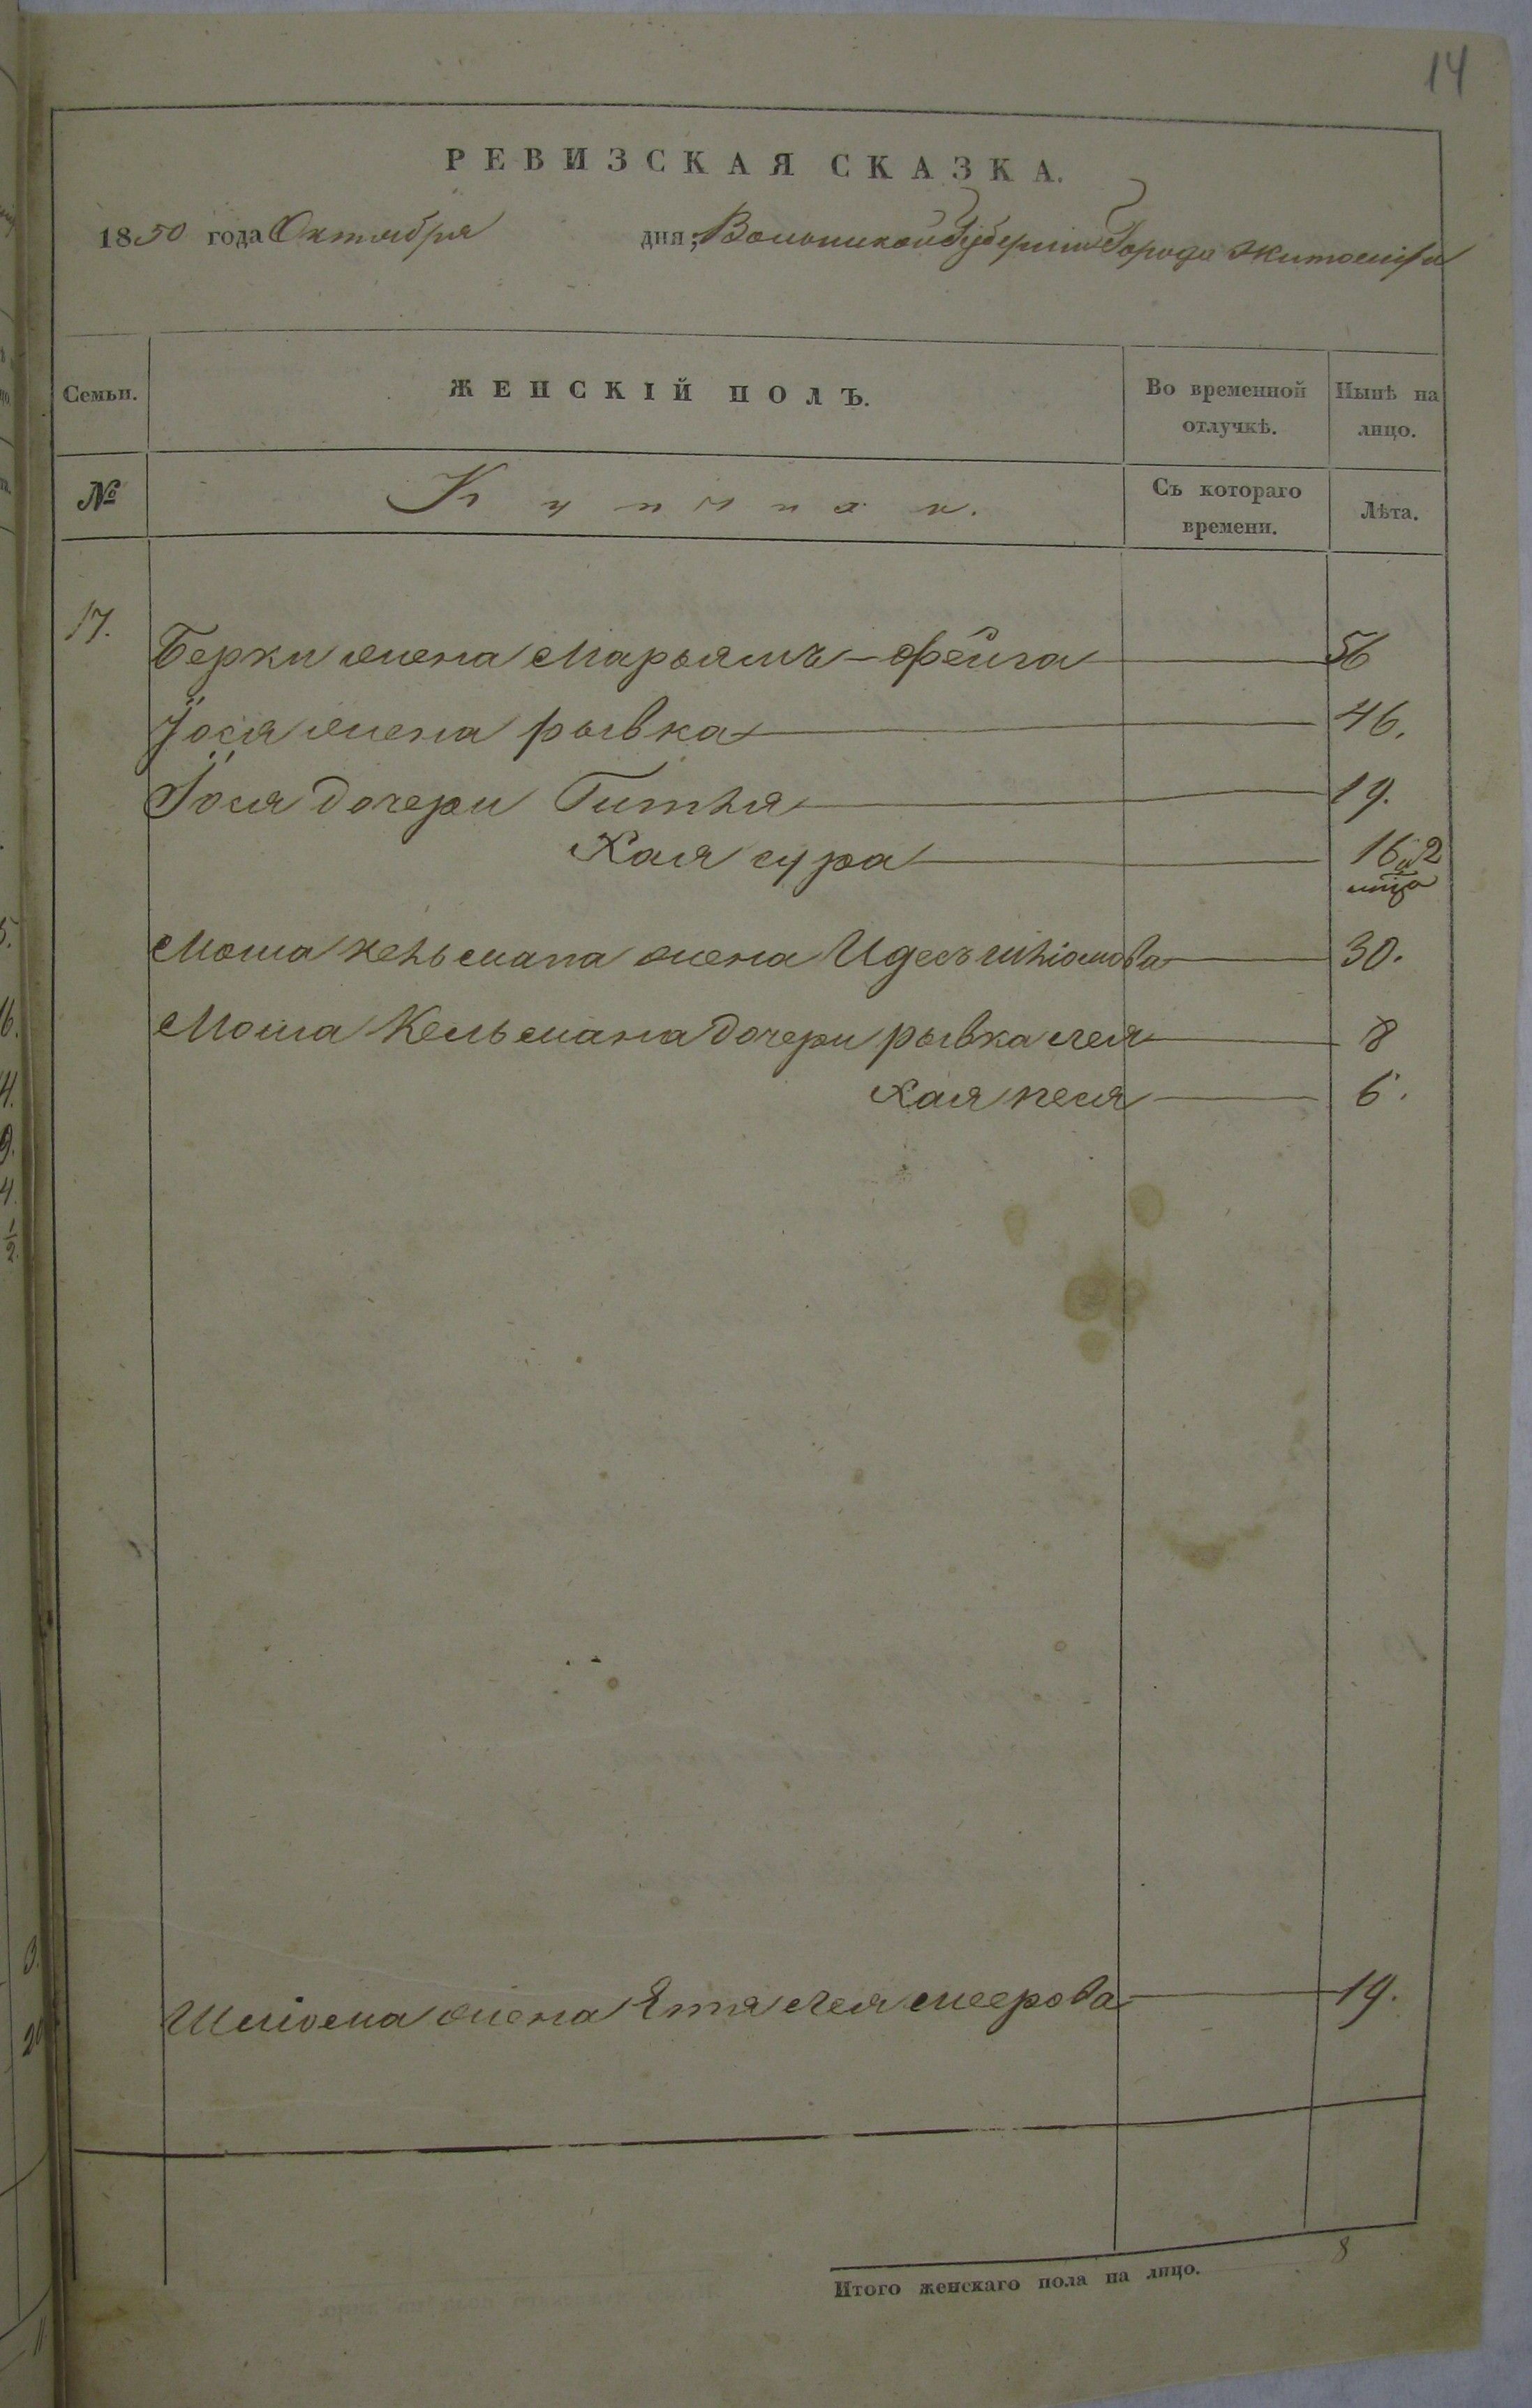 14
РЕВИЗСКАЯ СКАЗКА.
1850 года Октября дня, Волынской Губерніи Города Житоміра
Семьи. ЖЕНСКІЙ ПОЛЪ. Во временной отлучкѣ. Нынѣ на лицо.
№ Съ котораго времени. Лѣта.
17.
Берки жена Марьямъ-Фейга 56
Іося жена рывка 46.
Іося дочери Гитля 19.
Хая сура 16 и 2
Моша кельмана жена Идесъ шліомова 30.
Моша Кельмана дочери рывка лея 8
Хая песя 6.
Шліома жена Эття лея меерова 19.
Итого женскаго пола на лицо. 8